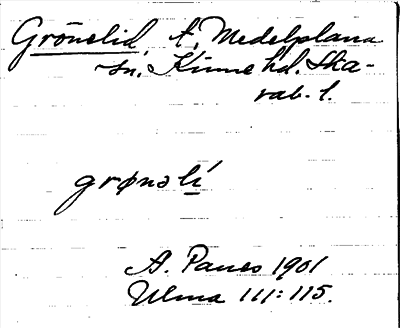 Grönelid, t. Medelplana
sn. Kinne hd. Ska-
rab. l.
grønəlí
A. Paues 1901
Ulma 111:115.